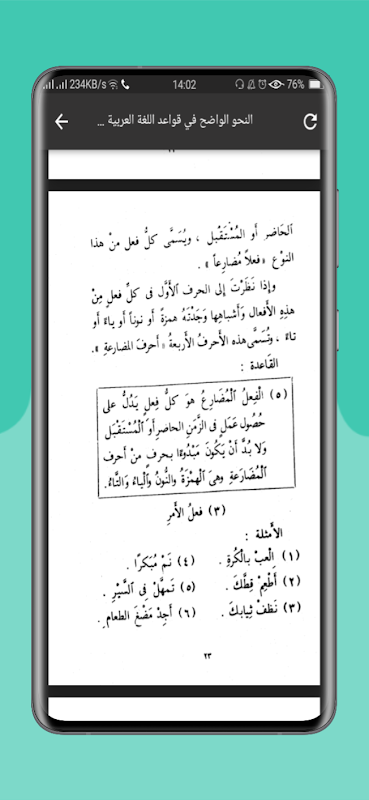 234KB/s
14:02
76%
النحو الواضح في قواعد اللغة العربية ...
ٱلحَاضر أَو المُسْتَقْبل ، ويُسَمَّى كلُّ فعل منْ هذا
النوْع « فعلاً مُضارِعاً » .
وإذا نَظَرْتَ إلى الحرف ٱلأَوَّل فى كلِّ فعلٍ مِنْ
هذِهِ ٱلأَفْعال وَأَشباهِها وَجَدْتَهُ همزةً أو نوناً أو ياءً أو
تاءً ، وتُسَمَّى هذه الأَحرفُ الأَربعةُ « أَحرفَ المضارعةِ » .
القَاعدة :
(٥) الْفِعلُ ٱلْمُضَارِعُ هوَ كلُّ فِعلٍ يَدُلُّ على
حُصُولِ عَمَلٍ فى الزَّمَنِ الحاضرِ أَوِ ٱلْمُسْتَقْبَلِ
وَلا بُدَّ أَنْ يَكُونَ مَبْدُوءًا بحرفٍ منْ أحرف
ٱلْمُضَارَعَةِ وهىَ ٱلْهمْزَةُ والنُّونُ وٱلْياءُ وَٱلتَّاءُ .
(٣) فعلُ الأَمرِ
الأَمثلة :
(١) اِلْعبْ بالْكُرةِ .
(٤) نَمْ مُبَكرًا .
(٢) أَطْعِمْ قِطَّكَ .
(٥) تَمهَّلْ فِى ٱلسَّيْرِ .
(٣) نَظفْ ثِيابكَ .
(٦) أَجِدْ مَضْغَ الطعام .
٢٣